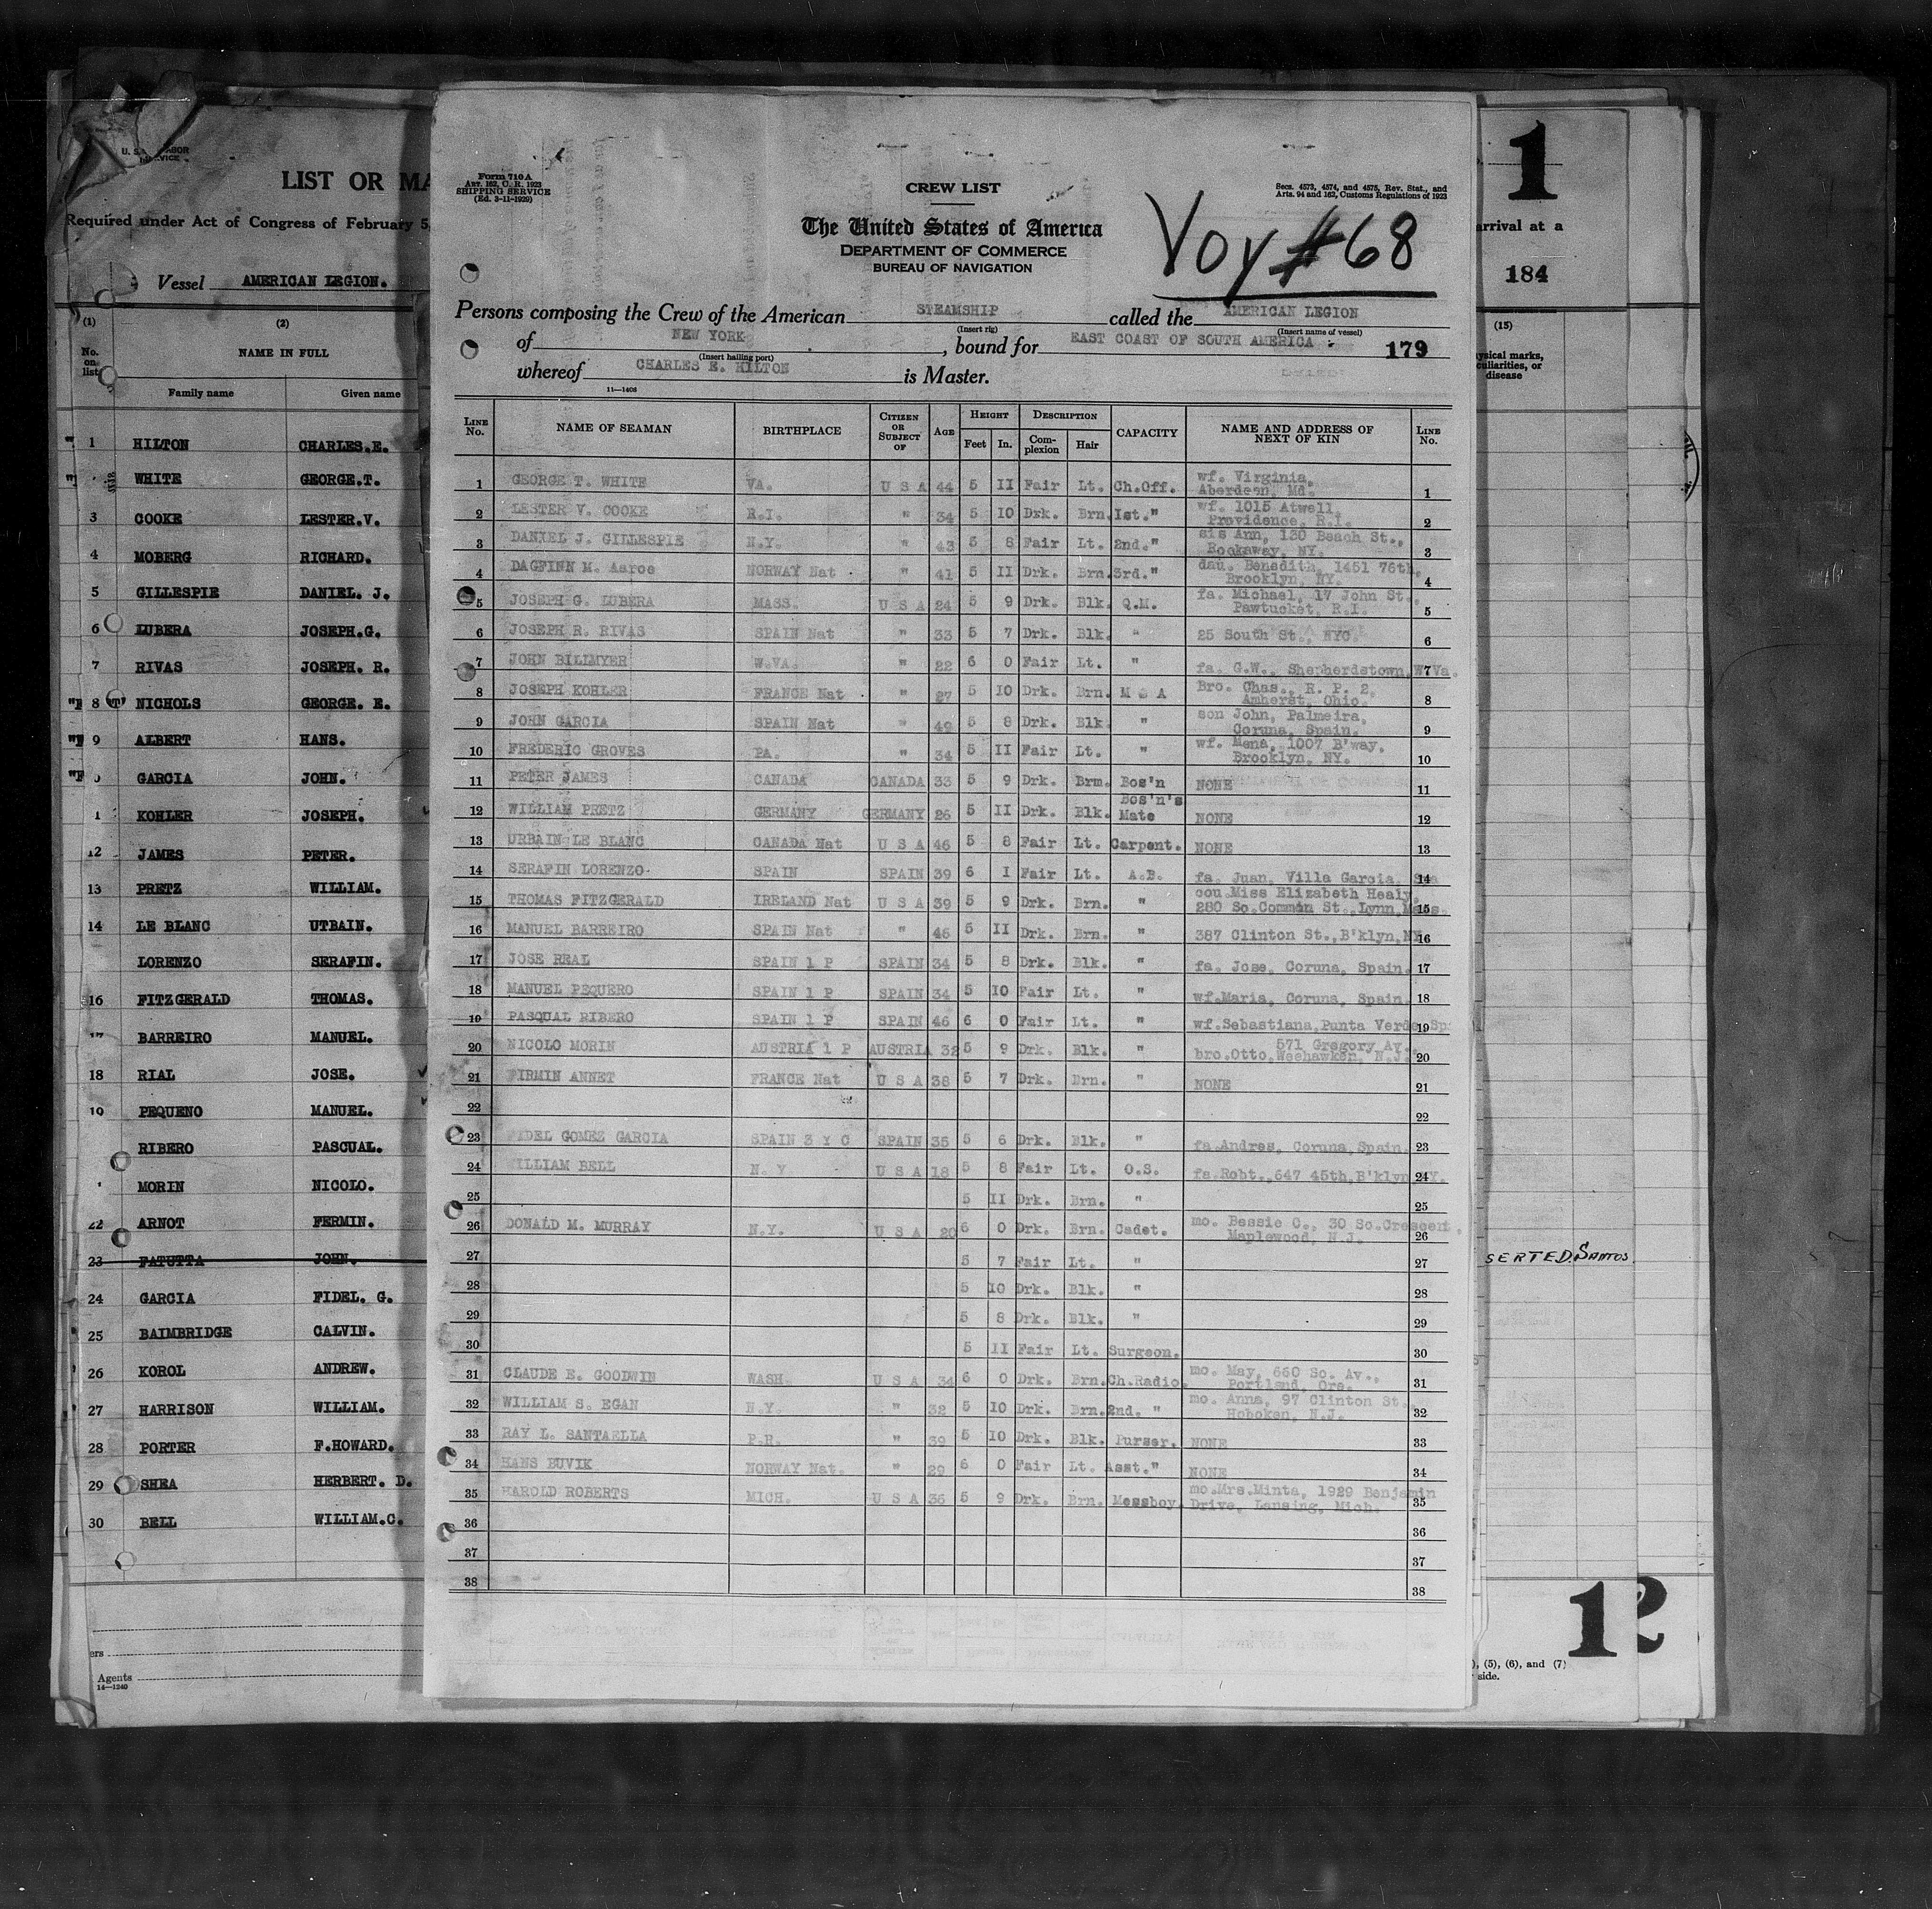 U. S.
LIST OR MA
Required under Act of Congress of February 5,
Vessel AMERICAN LEGION.
(1) (2)
No. on list
NAME IN FULL
Family name Given name
1 HILTON CHARLES.E.
WHITE GEORGE.T.
3 COOKE LESTER.V.
4 MOBERG RICHARD.
5 GILLESPIE DANIEL. J.
6 LUBERA JOSEPH.G.
7 RIVAS JOSEPH. R.
8 NICHOLS GEORGE. E.
9 ALBERT HANS.
GARCIA JOHN.
1 KOHLER JOSEPH.
12 JAMES PETER.
13 PRETZ WILLIAM.
14 LE BLANC UTBAIN.
LORENZO SERAFIN.
16 FITZGERALD THOMAS.
17 BARREIRO MANUEL.
18 RIAL JOSE.
19 PEQUENO MANUEL.
RIBERO PASCUAL.
MORIN NICOLO.
22 ARNOT FERMIN.
23 FATUTTA JOHN.
24 GARCIA FIDEL. G.
25 BAIMBRIDGE CALVIN.
26 KOROL ANDREW.
27 HARRISON WILLIAM.
28 PORTER F.HOWARD.
29 SHEA HERBERT. D.
30 BELL WILLIAM.C.
ers
Agents
14—1240
Form 710 A
ART. 162, C. R. 1923
SHIPPING SERVICE
(Ed. 3-11-1929)
CREW LIST
Secs. 4573, 4574, and 4575, Rev. Stat., and
Arts. 94 and 162, Customs Regulations of 1923
The United States of America
DEPARTMENT OF COMMERCE
BUREAU OF NAVIGATION
Voy #68
Persons composing the Crew of the American STEAMSHIP called the AMERICAN LEGION
(Insert rig) (Insert name of vessel)
of NEW YORK, bound for EAST COAST OF SOUTH AMERICA 179
(Insert hailing port)
whereof CHARLES E. HILTON is Master.
11—1408
LINE No. NAME OF SEAMAN BIRTHPLACE CITIZEN OR SUBJECT OF AGE HEIGHT Feet In. DESCRIPTION Complexion Hair CAPACITY NAME AND ADDRESS OF NEXT OF KIN LINE No.
1 GEORGE T. WHITE VA. U S A 44 5 11 Fair Lt. Ch.Off. wf. Virginia, Aberdeen, Md. 1
2 LESTER V. COOKE R.I. " 34 5 10 Drk. Brn. 1st." wf. 1015 Atwell, Providence, R.I. 2
3 DANIEL J. GILLESPIE N.Y. " 43 5 8 Fair Lt. 2nd." sis Ann, 130 Beach St., Rockaway, NY. 3
4 DAGFINN M. Aaroe NORWAY Nat " 41 5 11 Drk. Brn. 3rd." dau. Benedith, 1451 76th, Brooklyn, NY. 4
5 JOSEPH G. LUBERA MASS. U S A 24 5 9 Drk. Blk. Q.M. fa. Michael, 17 John St., Pawtucket, R.I. 5
6 JOSEPH R. RIVAS SPAIN Nat " 33 5 7 Drk. Blk. " 25 South St., NYC. 6
7 JOHN BILLMYER W.VA. " 22 6 0 Fair Lt. " fa. G.W., Shepherdstown, W.Va. 7
8 JOSEPH KOHLER FRANCE Nat " 27 5 10 Drk. Brn. M S A Bro. Chas., R. P. 2, Amherst, Ohio. 8
9 JOHN GARCIA SPAIN Nat " 49 5 8 Drk. Blk. " son John, Palmeira, Coruna, Spain. 9
10 FREDERIC GROVES PA. " 34 5 11 Fair Lt. " wf. Mena, 1007 B'way, Brooklyn, NY. 10
11 PETER JAMES CANADA CANADA 33 5 9 Drk. Brm. Bos'n NONE 11
12 WILLIAM PRETZ GERMANY GERMANY 26 5 11 Drk. Blk. Bos'n's Mate NONE 12
13 URBAIN LE BLANC CANADA Nat U S A 46 5 8 Fair Lt. Carpent. NONE 13
14 SERAFIN LORENZO SPAIN SPAIN 39 6 1 Fair Lt. A.B. fa. Juan, Villa Garcia, 14
15 THOMAS FITZGERALD IRELAND Nat U S A 39 5 9 Drk. Brn. " cou Miss Elizabeth Healy, 280 So.Common St., Lynn, Mass. 15
16 MANUEL BARREIRO SPAIN Nat " 46 5 11 Drk. Brn. " 387 Clinton St., B'klyn, NY 16
17 JOSE REAL SPAIN 1 P SPAIN 34 5 8 Drk. Blk. " fa. Jose, Coruna, Spain. 17
18 MANUEL PEQUERO SPAIN 1 P SPAIN 34 5 10 Fair Lt. " wf.Maria, Coruna, Spain. 18
19 PASQUAL RIBERO SPAIN 1 P SPAIN 46 6 0 Fair Lt. " wf.Sebastiana, Punta Verde Sp 19
20 NICOLO MORIN AUSTRIA 1 P AUSTRIA 32 5 9 Drk. Blk. " 571 Gregory Av., bro.Otto, Weehawken, N.J. 20
21 FIRMIN ANNET FRANCE Nat U S A 38 5 7 Drk. Brn. " NONE 21
22 22
23 FIDEL GOMEZ GARCIA SPAIN 3 Y C SPAIN 35 5 6 Drk. Blk. " fa.Andres, Coruna, Spain. 23
24 WILLIAM BELL N. Y U S A 18 5 8 Fair Lt. O.S. fa.Robt., 647 45th, B'klyn, NY. 24
25 5 11 Drk. Brn. " 25
26 DONALD M. MURRAY N.Y. U S A 20 6 0 Drk. Brn. Cadet. mo. Bessie C., 30 So.Crescent, Maplewood, N.J. 26
27 5 7 Fair Lt. " 27
28 5 10 Drk. Blk. " 28
29 5 8 Drk. Blk. " 29
30 5 11 Fair Lt. Surgeon. 30
31 CLAUDE E. GOODWIN WASH. U S A 34 6 0 Drk. Brn. Ch.Radio. mo. May, 660 So. Av., Portland, Ore. 31
32 WILLIAM S. EGAN N.Y. " 32 5 10 Drk. Brn. 2nd. " mo. Anna, 97 Clinton St., Hoboken, N.J. 32
33 RAY L. SANTAELLA P.R. " 39 5 10 Drk. Blk. Purser. NONE 33
34 HANS BUVIK NORWAY Nat. " 29 6 0 Fair Lt. Asst." NONE 34
35 HAROLD ROBERTS MICH. U S A 36 5 9 Drk. Brn. Messboy. mo.Mrs.Minta, 1929 Benjamin Drive, Lansing, Mich. 35
36 36
37 37
38 38
1
arrival at a
184
(15)
ysical marks,
culiarities, or
disease
SERTED. SANTOS.
12
), (5), (6), and (7)
side.